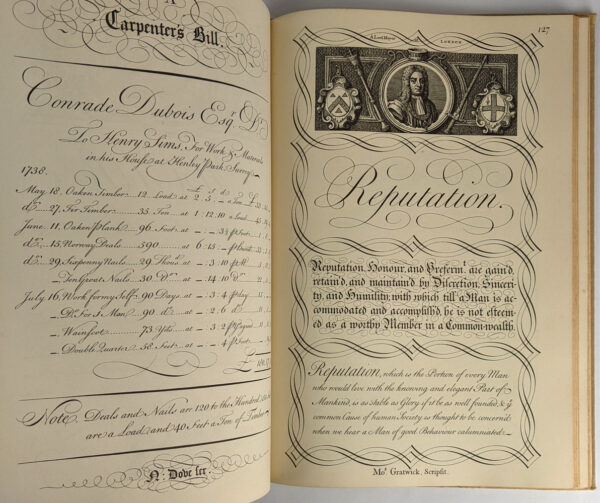 A
Carpenter's Bill.
Conrade Dubois Esqr. Dr.
To Henry Sims, For Work & Materials
in his House at Henley Park Surry.
1738. £ s d
May. 18. Oaken Timber 12 Load at 2 5 - a Ton
do. 27. Fir Timber 35 Ton at 1 12 10 a Load
June. 11. Oaken Plank 96 Feet at - - 3½ pr. foot
do. 15. Norway Deals 590 at 6 15 - pr.
do. 29. Sixpenny Nails 29 Thousd. at - 3 10 pr. M
- TenGroat Nails 30 Do. at - 14 10 do.
July. 16. Work for my Self 90 Days at - 3 4 pr. day
- Do. For I. Man 90 do. at - 2 6 d
- Wainscot 73 Yds. at - 3 2 pr.
- Double Quarter 58 Feet at - - 4 pr. foot
£
Note. Deals and Nails are 120 to the Hundred
are a Load and 40 Feet a Ton of Timber
N: Dove scr.
127
London
Reputation.
Reputation, Honour, and Prefermt. are gain'd,
retain'd, and maintain'd by Discretion, Sinceri-
ty, and Humility, with which till a Man is ac-
commodated and accomplish'd, he is not esteem-
ed as a worthy Member in a Common-wealth.
Reputation, which is the Portion of every Man
who would live with the knowing and elegant Part of
Mankind, is as stable as Glory if it be as well founded, & ye
common Cause of human Society is thought to be concern'd
when we hear a Man of good Behaviour calumniated:
Mos. Gratwick, Scripsit.